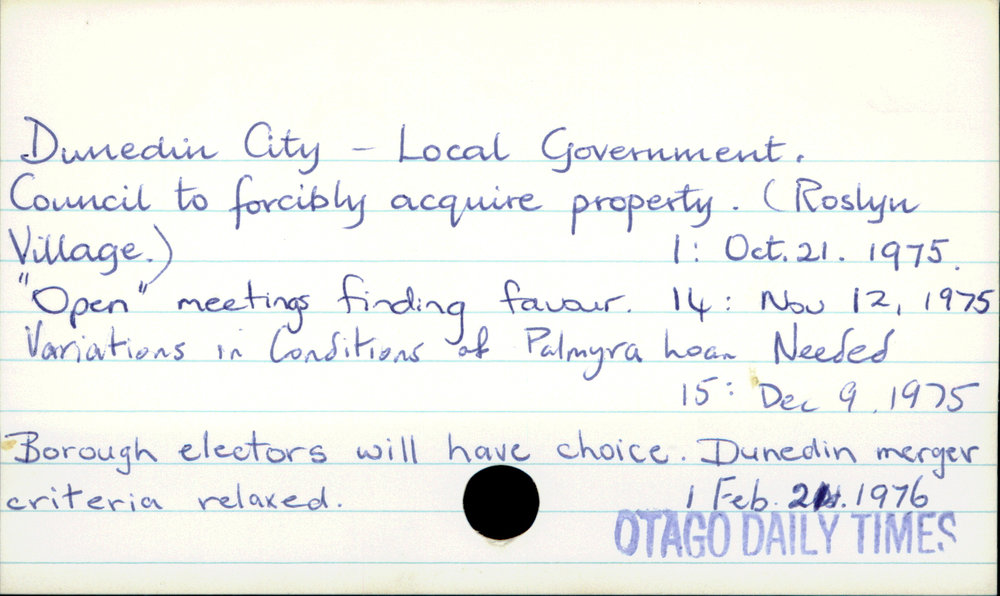 Dunedin City - Local Government.
Council to forcibly acquire property. (Roslyn
Village.) 1: Oct. 21. 1975.
"Open" meetings finding favour. 14: Nov 12, 1975
Variations in Conditions of Palmyra Loan Needed
15: Dec 9, 1975
Borough electors will have choice. Dunedin merger
criteria relaxed. 1 Feb. 1976
OTAGO DAILY TIMES